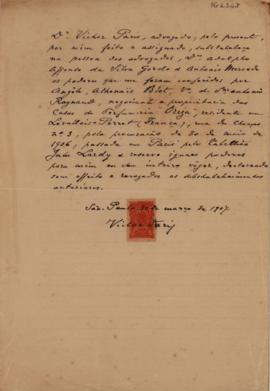 Dr. Victor Paris, advogado, pelo presente,
por mim feito e assignado, substabeleço
na pessoa dos advogados, Drs. Adolpho
Affonso da Silva Gordo e Antonio Mercado
os poderes que me foram conferidos por
Athenais Biot, Va. de
Raynaud, negociante e proprietaria da
Casa de Perfumaria Oriza, residente em
Levallois-Perret, França, rua de
nº 3, pela procuração de 30 de maio de
1906, passada em Paris pelo Tabellião
Lardy e reservo iguaes poderes
para mim em seu inteiro vigor, declarando
sem effeito e revogados os substabelecimentos
anteriores.
São Paulo, de março de 1907.
Victor Paris